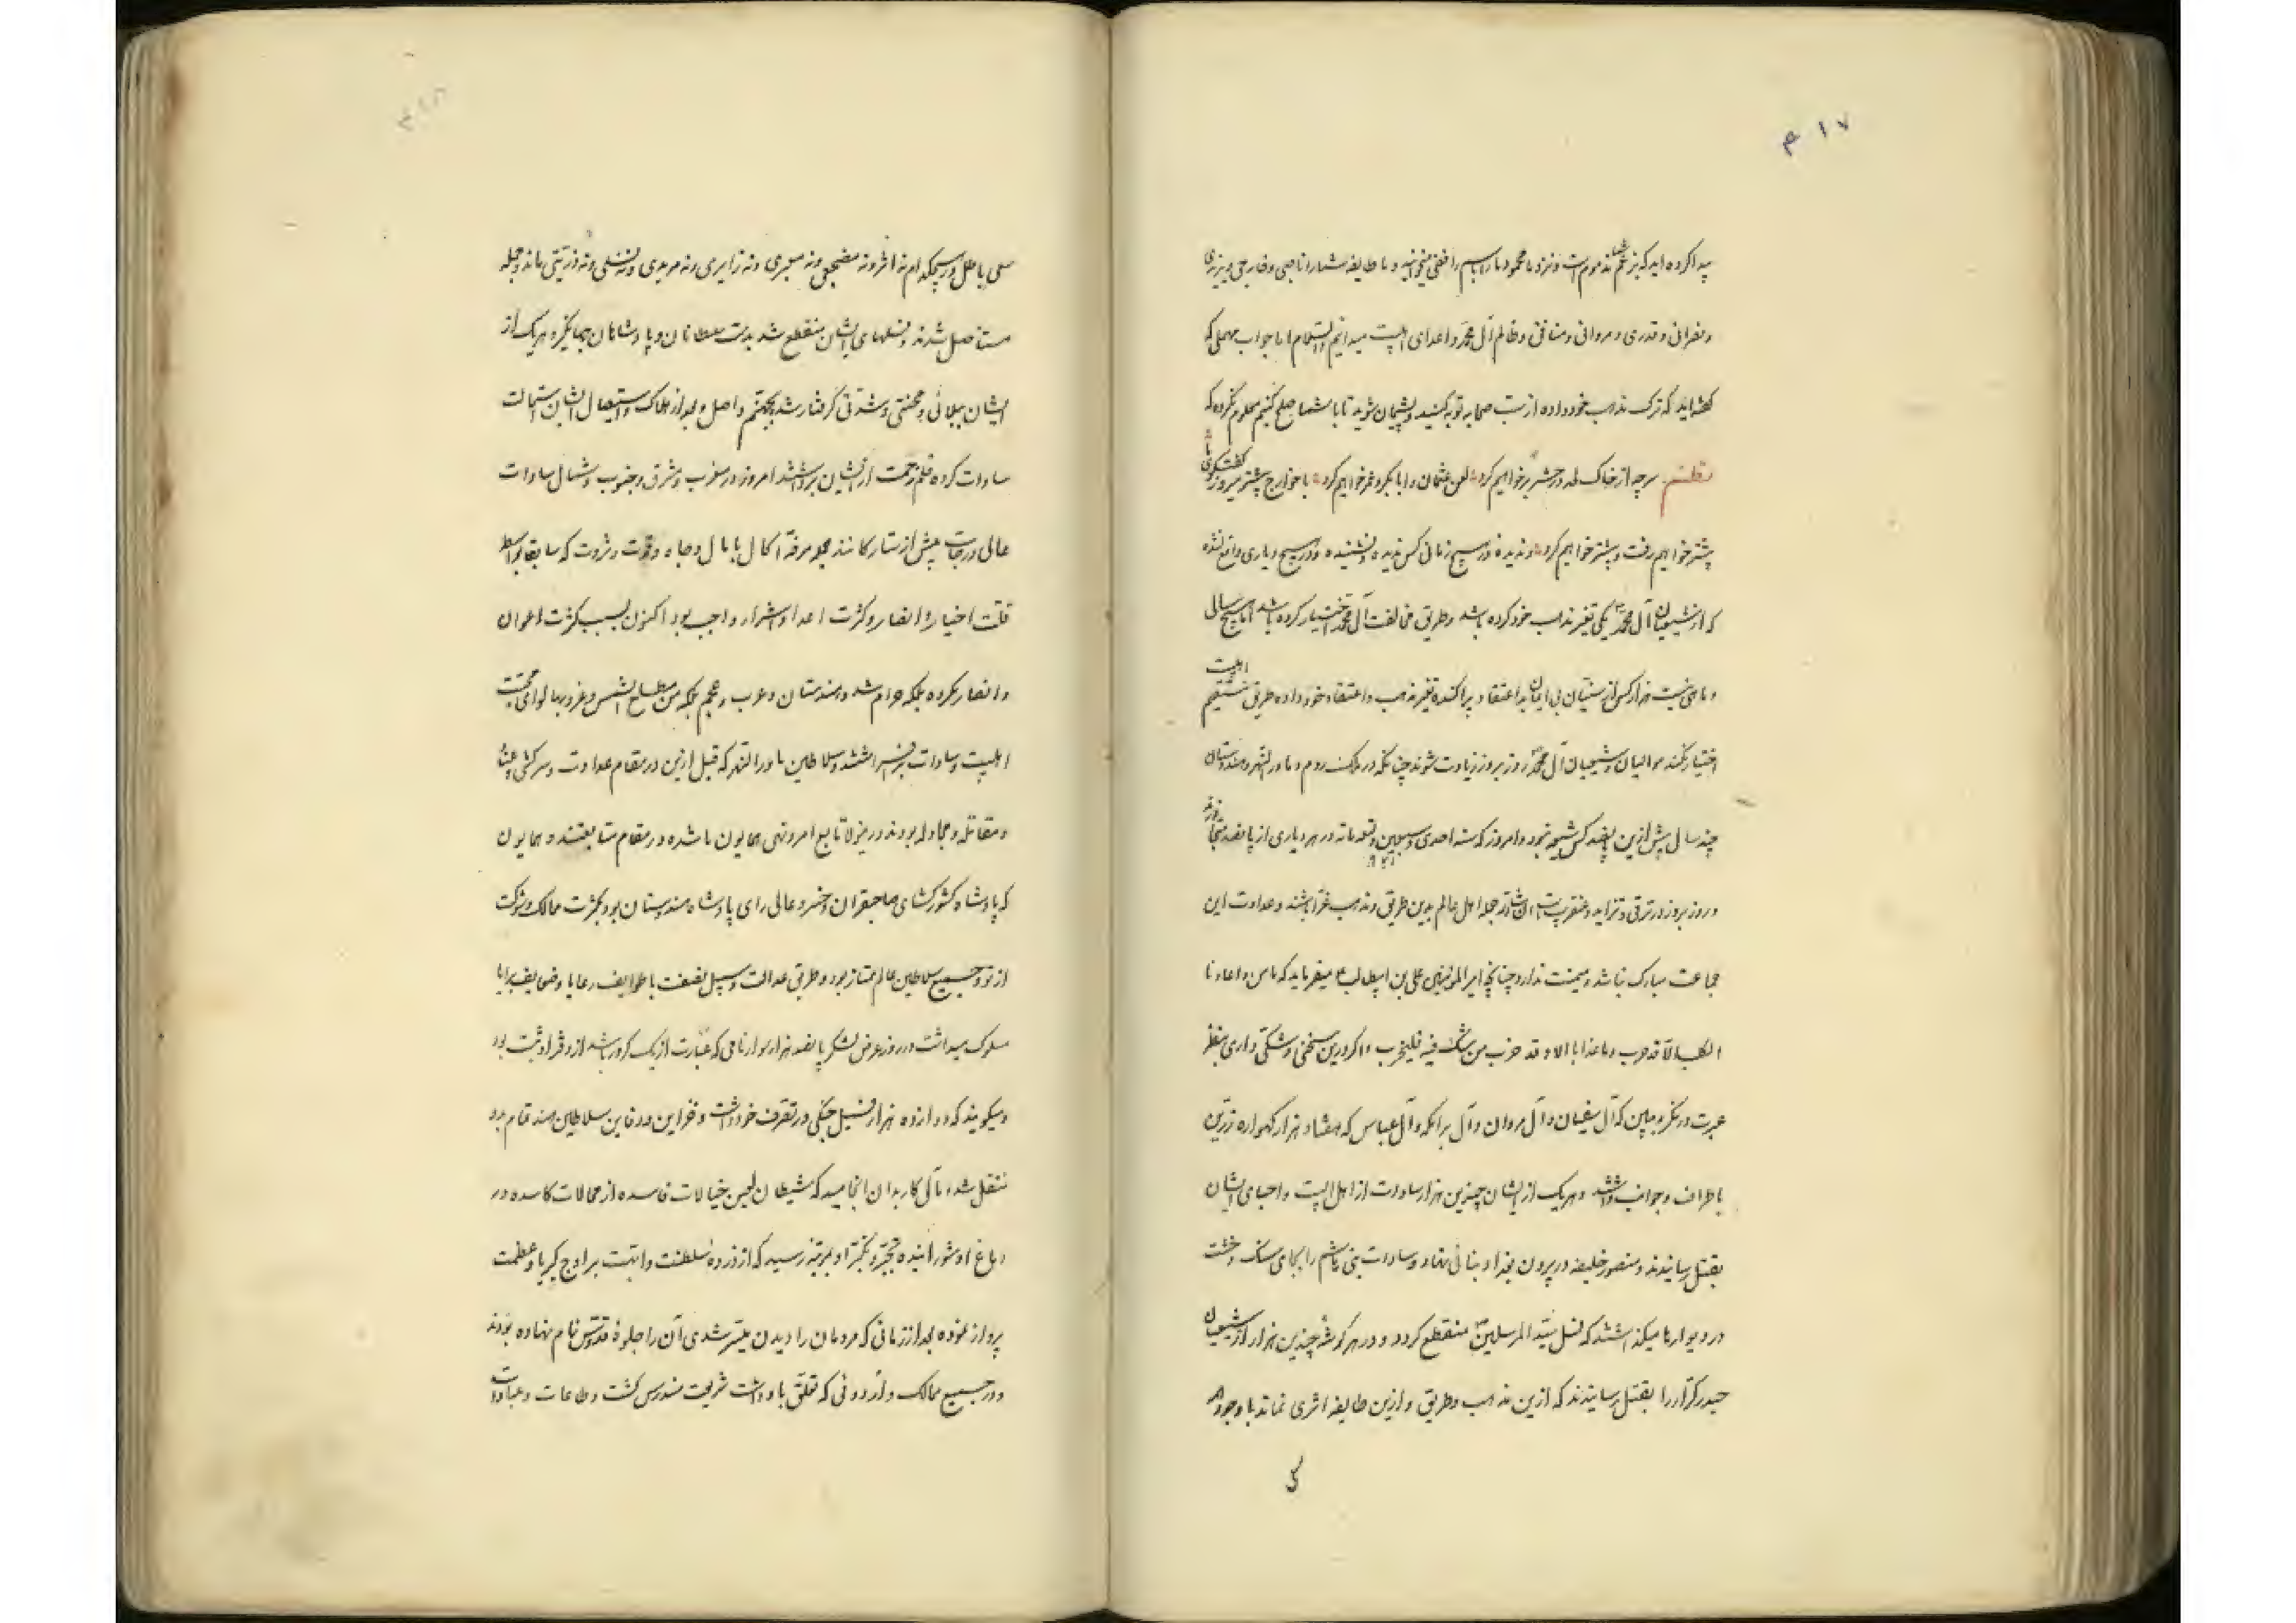 ۴۱۷
پیدا کرده اید که بزعم شما مذموم است و نزد ما محمود ما را باسم رافضی میخوانید و ما طایفه شما را ناصبی و خارجی و یزیدی
و نصرانی و قدری و مروانی و منافق و ظالم آل محمد و اعدای اهلبیت میدانیم والسلام اما جواب مهملی که
گفته اید که ترک مذهب خود داده از سب صحابه توبه کنید و پشیمان شوید تا با شما صلح کنیم معلوم نکرده که
نظم سر چه از خاک لحد در حشر بر خواهیم کرد لعن عثمان و ابابکر و عمر خواهیم کرد با خوارج پیشتر میرفت گر
پیشتر خواهیم رفت و بیشتر خواهیم کرد و در هیچ زمانی کس ندیده و نشنیده و در هیچ دیاری واقع نشده
که از شیعیان آل محمد یکی تغیر مذهب خود کرده باشد و طریق مخالفت آل محمد اختیار کرده باشد اما هیچ سال
و ماهی نیست هزار کس از سنیان بی ایمان بد اعتقاد پراکنده تغیر مذهب و اعتقاد خود داده طریق مستقیم اهلبیت
اختیار نکنند موالیان و شیعیان آل محمد روز بروز زیادت شوند چنانکه در ملک روم و ماورالنهر و هندوستان
چند سال پیش ازین پانصد کس شیعه نبود و امروز که سنه احدی و سبعین و تسعمائه در هر دیاری از پانصد هزار متجاوزند
۹۷۱
و روز بروز در ترقی و تزاید و عنقریب است ان شا الله که جمله اهل عالم بدین طریق و مذهب غرا باشند و عداوت این
جماعت مبارک نباشد و میمنت ندارد چنانچه امیرالمومنین علی بن ابیطالب ع میفرماید که ما من و اعادنا
الکلب الا قد جرب و ما عذابا الا و قد خرب من شک فیه فلیجرب و اگر درین سخنی و شکی داری بنظر
عبرت در نگر و ببین که آل سفیان و آل مروان و آل برامکه و آل عباس که هشتاد هزار گهواره زرین
باطراف و جوانب داشتند و هر یک از ایشان چندین هزار سادات از اهل البیت و احبای ایشان
بقتل رسانیدند و منصور خلیفه در بیرون بغداد بنائی نهاد و سادات بنی هاشم را بجای سنک و خشت
در دیوارها میگذاشتند که نسل سید المرسلین منقطع گردد و در هر گوشه چندین هزار از شیعیان
حیدر کرار را بقتل رسانیدند که ازین مذهب و طریق و ازین طایفه اثری نماند با وجود
سعی باطل از هیچکدام نه اثر و نه مضجعی و نه معبری و نه زایری و نه مریدی و نه نسلی و نه ذریتی ماند و جمله
مستاصل شدند و نسلهای ایشان منقطع شد بدست سلطانان و پادشاهان جهانگیر و هر یک از
ایشان ببلائی و محنتی و شدتی گرفتار شد بجهنم واصل و بعد از هلاک و استیصال ایشان استمالت
سادات کرده قلم زحمت از ایشان برداشتند امروز در مغرب و مشرق و جنوب و شمال سادات
عالی درجات پیش از ستارگانند همه مرفه الحال با مال و جاه و قوت و ثروت که سابقا بواسطه
قلت اخیار و انصار و کثرت اعدا و اشرار واجب بود اکنون بسبب کثرت اعوان
و انصار نکرده بلکه حرام شد و هندوستان و عرب و عجم بلکه من مطلع الشمس و غروبها لوای محبت
اهلبیت و سادات برافراشتند و سلاطین ماورالنهر که قبل ازین در مقام عداوت و سرکشی و عناد
و مقاتله و مجادله بودند درینولا تابع امر و نهی همایون ما شده در مقام متابعتند و همایون
که پادشاه کشورگشای صاحبقران و خسرو عالی رای پادشاه هندوستان بود بکثرت ممالک و شوکت
از تو و جمیع سلاطین عالم ممتاز بود و طریق عدالت و سبیل نصفت با طوایف رعایا و ضعایف برایا
سلوک میداشت و در روز عرض لشکر پانصد هزار سوار نامی که عبارت از یک کرور باشد از دفتر او ثبت بود
و میگویند که دوازده هزار فیل جنگی در تصرف خود داشت و خزاین و دفاین سلاطین هند تمام بدو
منتقل شده مآل کار بدان انجامید که شیطان لعین خیالات فاسده از محالات کاسده در
دماغ او شورانیده تجبر و تکبر او بمرتبه رسید که از ذروه سلطنت و ابهت بر اوج کبریا و عظمت
پرواز نموده بعد از زمانی که مردمان را دیدن میسر شدی آن را جلوه قدوس نام نهاده بودند
و در جمیع ممالک و اردوئی که تعلق باو داشت شریعت مندرس گشت و طاعات و عبادات